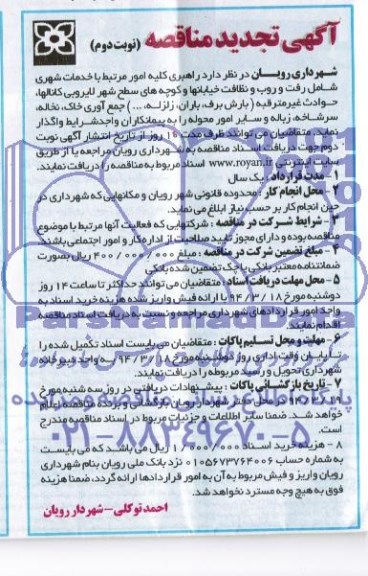 آگهی تجدید مناقصه (نوبت دوم)
شهرداری رویان در نظر دارد راهبری کلیه امور مرتبط با خدمات شهری
شامل رفت و روب و نظافت خیابانها و کوچه های سطح شهر لایروبی کانالها،
حوادث غیرمترقبه (بارش برف، باران، زلزله، ...) جمع آوری خاک، نخاله،
سرشاخه، زباله و سایر امور محوله را به پیمانکاران واجد شرایط واگذار
نماید. متقاضیان می توانند ظرف مدت روز از تاریخ انتشار آگهی نوبت
دوم جهت دریافت اسناد مناقصه به شهرداری رویان مراجعه یا از طریق
سایت اینترنتی www.royan.ir اسناد مربوط به مناقصه را دریافت نمایند.
۱- مدت قرارداد: یک سال
۲- محل انجام کار: محدوده قانونی شهر رویان و مکانهایی که شهرداری در
حین انجام کار بر حسب نیاز ابلاغ می نماید.
۳- شرایط شرکت در مناقصه: شرکتهایی که فعالیت آنها مرتبط با موضوع
مناقصه بوده و دارای مجوز تایید صلاحیت از اداره کار و امور اجتماعی باشند.
۴- مبلغ تضمین شرکت در مناقصه: مبلغ ۴۰۰/۰۰۰/۰۰۰ ریال بصورت
ضمانتنامه معتبر بانکی یا چک تضمین شده بانکی
۵- محل مهلت دریافت اسناد: متقاضیان می توانند حداکثر تا ساعت ۱۴ روز
دوشنبه مورخ ۹۴/۳/۱۸ با ارائه فیش واریز شده هزینه خرید اسناد به
واحد امور قراردادهای شهرداری مراجعه و نسبت به دریافت اسناد مناقصه
اقدام نمایند.
ParsNamadData
۶- مهلت و محل تسلیم پاکات: متقاضیان می بایست اسناد تکمیل شده را
تا پایان وقت اداری روز دوشنبه مورخ ۹۴/۳/۱۸ به واحد دبیرخانه
شهرداری تحویل و رسید مربوطه را دریافت نمایند.
۷- تاریخ بازگشائی پاکات: پیشنهادات دریافتی در روز سه شنبه مورخ
در محل دفتر شهردار رویان بازگشائی و برنده مناقصه اعلام
خواهد شد. ضمنا سایر اطلاعات و جزئیات مربوط در اسناد مناقصه مندرج
است.
۰۲۱-۸۸۳۴۹۶۷۰-۵
۸- هزینه خرید اسناد ۱/۰۰۰/۰۰۰ ریال می باشد که می بایست
به شماره حساب ۰۱۰۵۶۷۳۷۶۴۰۰۶ نزد بانک ملی رویان بنام شهرداری
رویان واریز و فیش مربوط به آن به امور قراردادها ارائه گردد، ضمنا هزینه
فوق به هیچ وجه مسترد نخواهد شد.
احمد توکلی - شهردار رویان